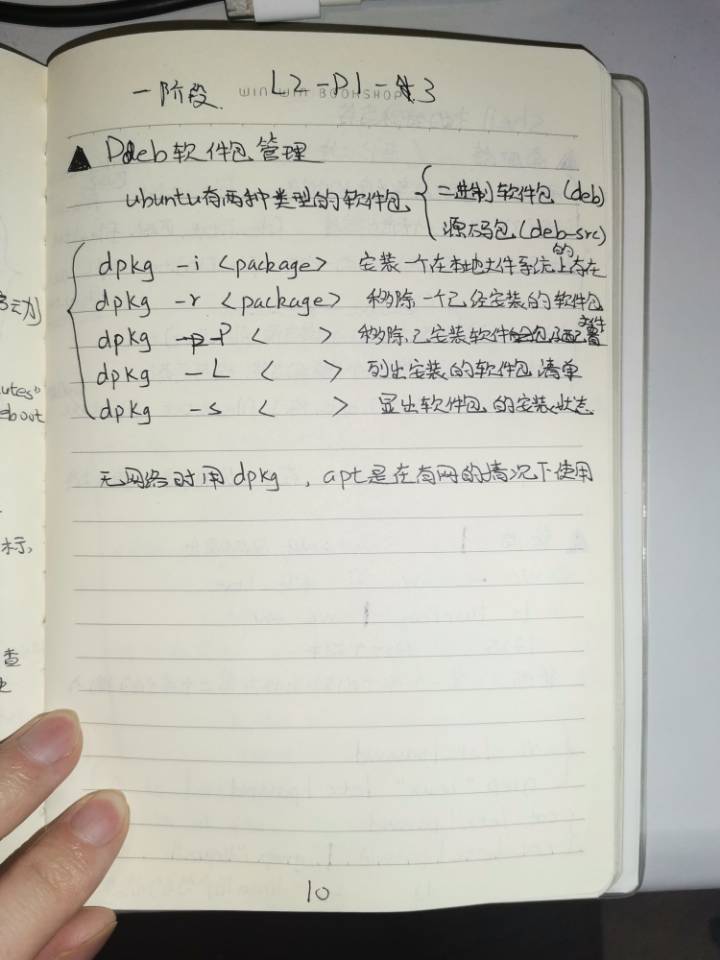 一阶段 L2-D1-3
WIN WIN BOOKSHOP
▲ Ddeb软件包管理
ubuntu有两种类型的软件包 { 二进制软件包(deb)
源码包(deb-src)
dpkg -i <package> 安装一个在本地文件系统上存在的
dpkg -r <package> 移除一个已经安装的软件包
dpkg -P < > 移除已安装软件包及配置文件
dpkg -L < > 列出安装的软件包清单
dpkg -s < > 显出软件包的安装状态
无网络时用dpkg，apt是在有网的情况下使用
10
utes
eboot
标,
查